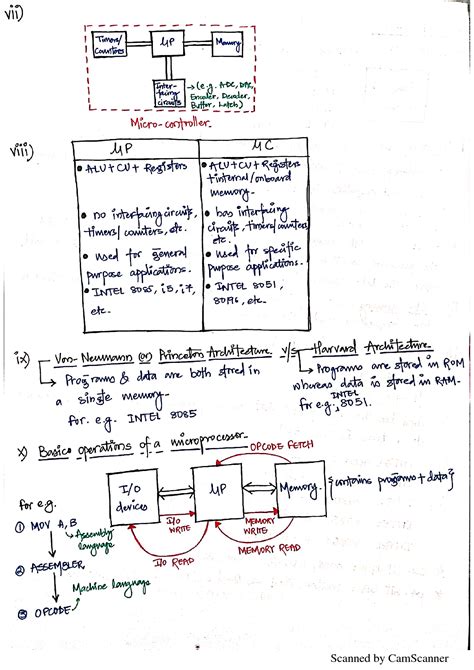 vii)
Timers/ counters
μP
Memory
Inter-
facing
circuits
→(e.g. ADC, DAC,
Encoder, Decoder,
Buffer, Latch)
Micro-controller.
viii)
μP
μC
• ALU + CU + Registers
• no interfacing circuits,
timers/counters, etc.
• used for general
purpose applications.
• INTEL 8085, i5, i7,
etc.
• ALU + CU + Registers
+ internal/onboard
memory.
• has interfacing
circuits, timers/counters
etc.
• used for specific
purpose applications.
• INTEL 8051,
8096, etc.
ix) Von-Neumann (or) Princeton Architecture v/s Harvard Architecture
→ Programs & data are both stored in
a single memory.
for e.g. INTEL 8085
→ Programs are stored in ROM
whereas data is stored in RAM.
for e.g. INTEL 8051.
x) Basic operations of a microprocessor
OPCODE FETCH
I/O
devices
μP
Memory.
{contains programs + data}
I/O
WRITE
MEMORY
WRITE
I/O READ
MEMORY READ
for e.g.
① MOV A, B
→ Assembly
language
② ASSEMBLER
Machine language
③ OPCODE
Scanned by CamScanner